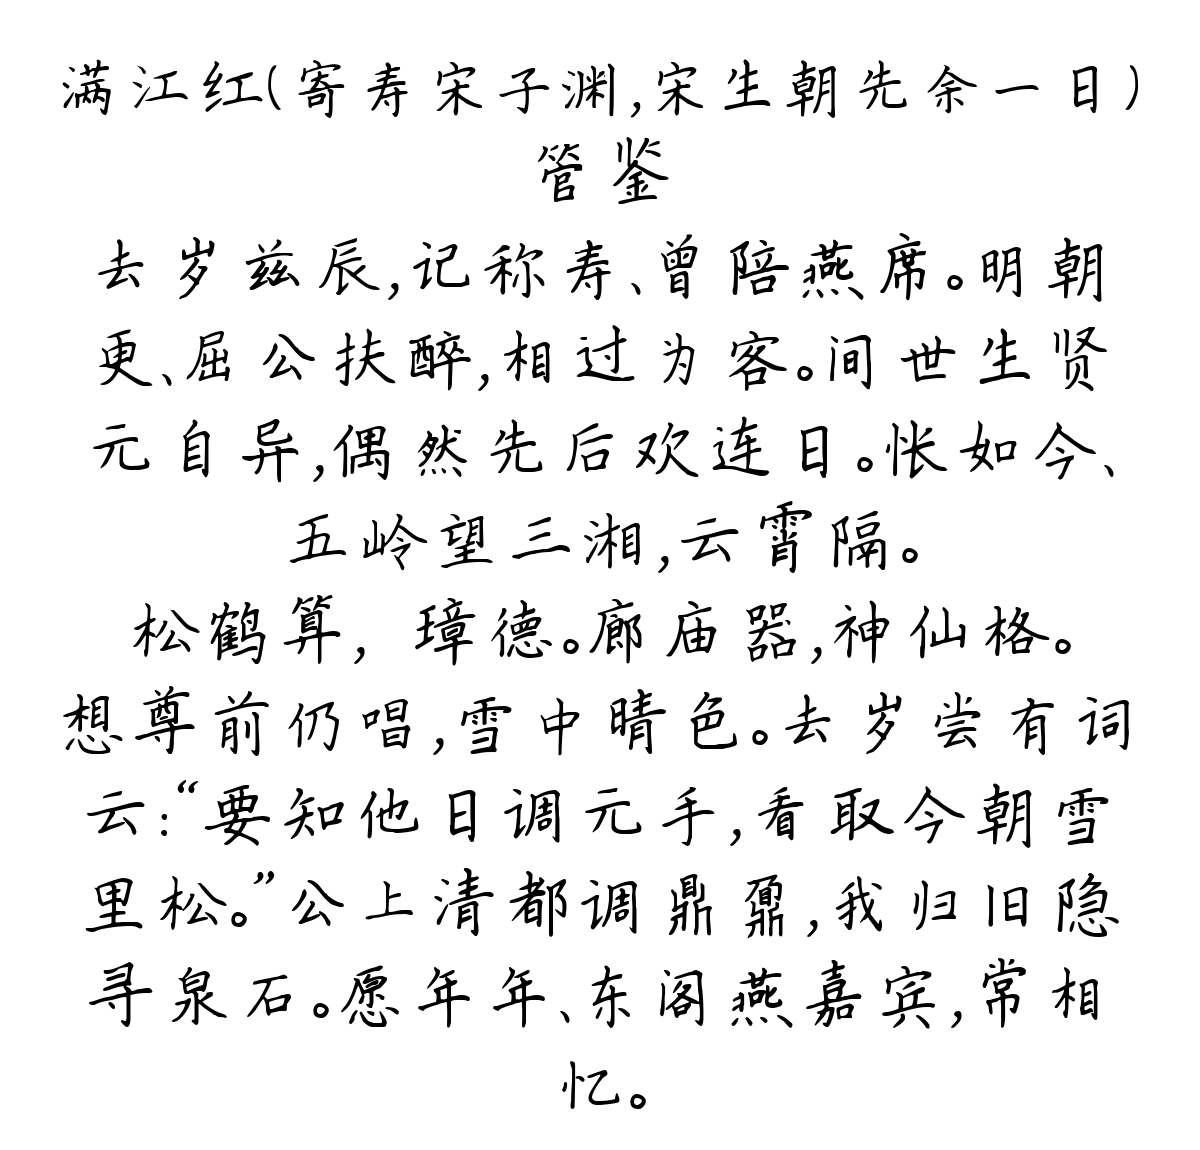 满江红(寄寿宋子渊,宋生朝先余一日)
管鉴
去岁兹辰,记称寿、曾陪燕席。明朝
更、屈公扶醉,相过为客。间世生贤
元自异,偶然先后欢连日。怅如今、
五岭望三湘,云霄隔。
松鹤算, 璋德。廊庙器,神仙格。
想尊前仍唱,雪中晴色。去岁尝有词
云:“要知他日调元手,看取今朝雪
里松。”公上清都调鼎鼐,我归旧隐
寻泉石。愿年年、东阁燕嘉宾,常相
忆。